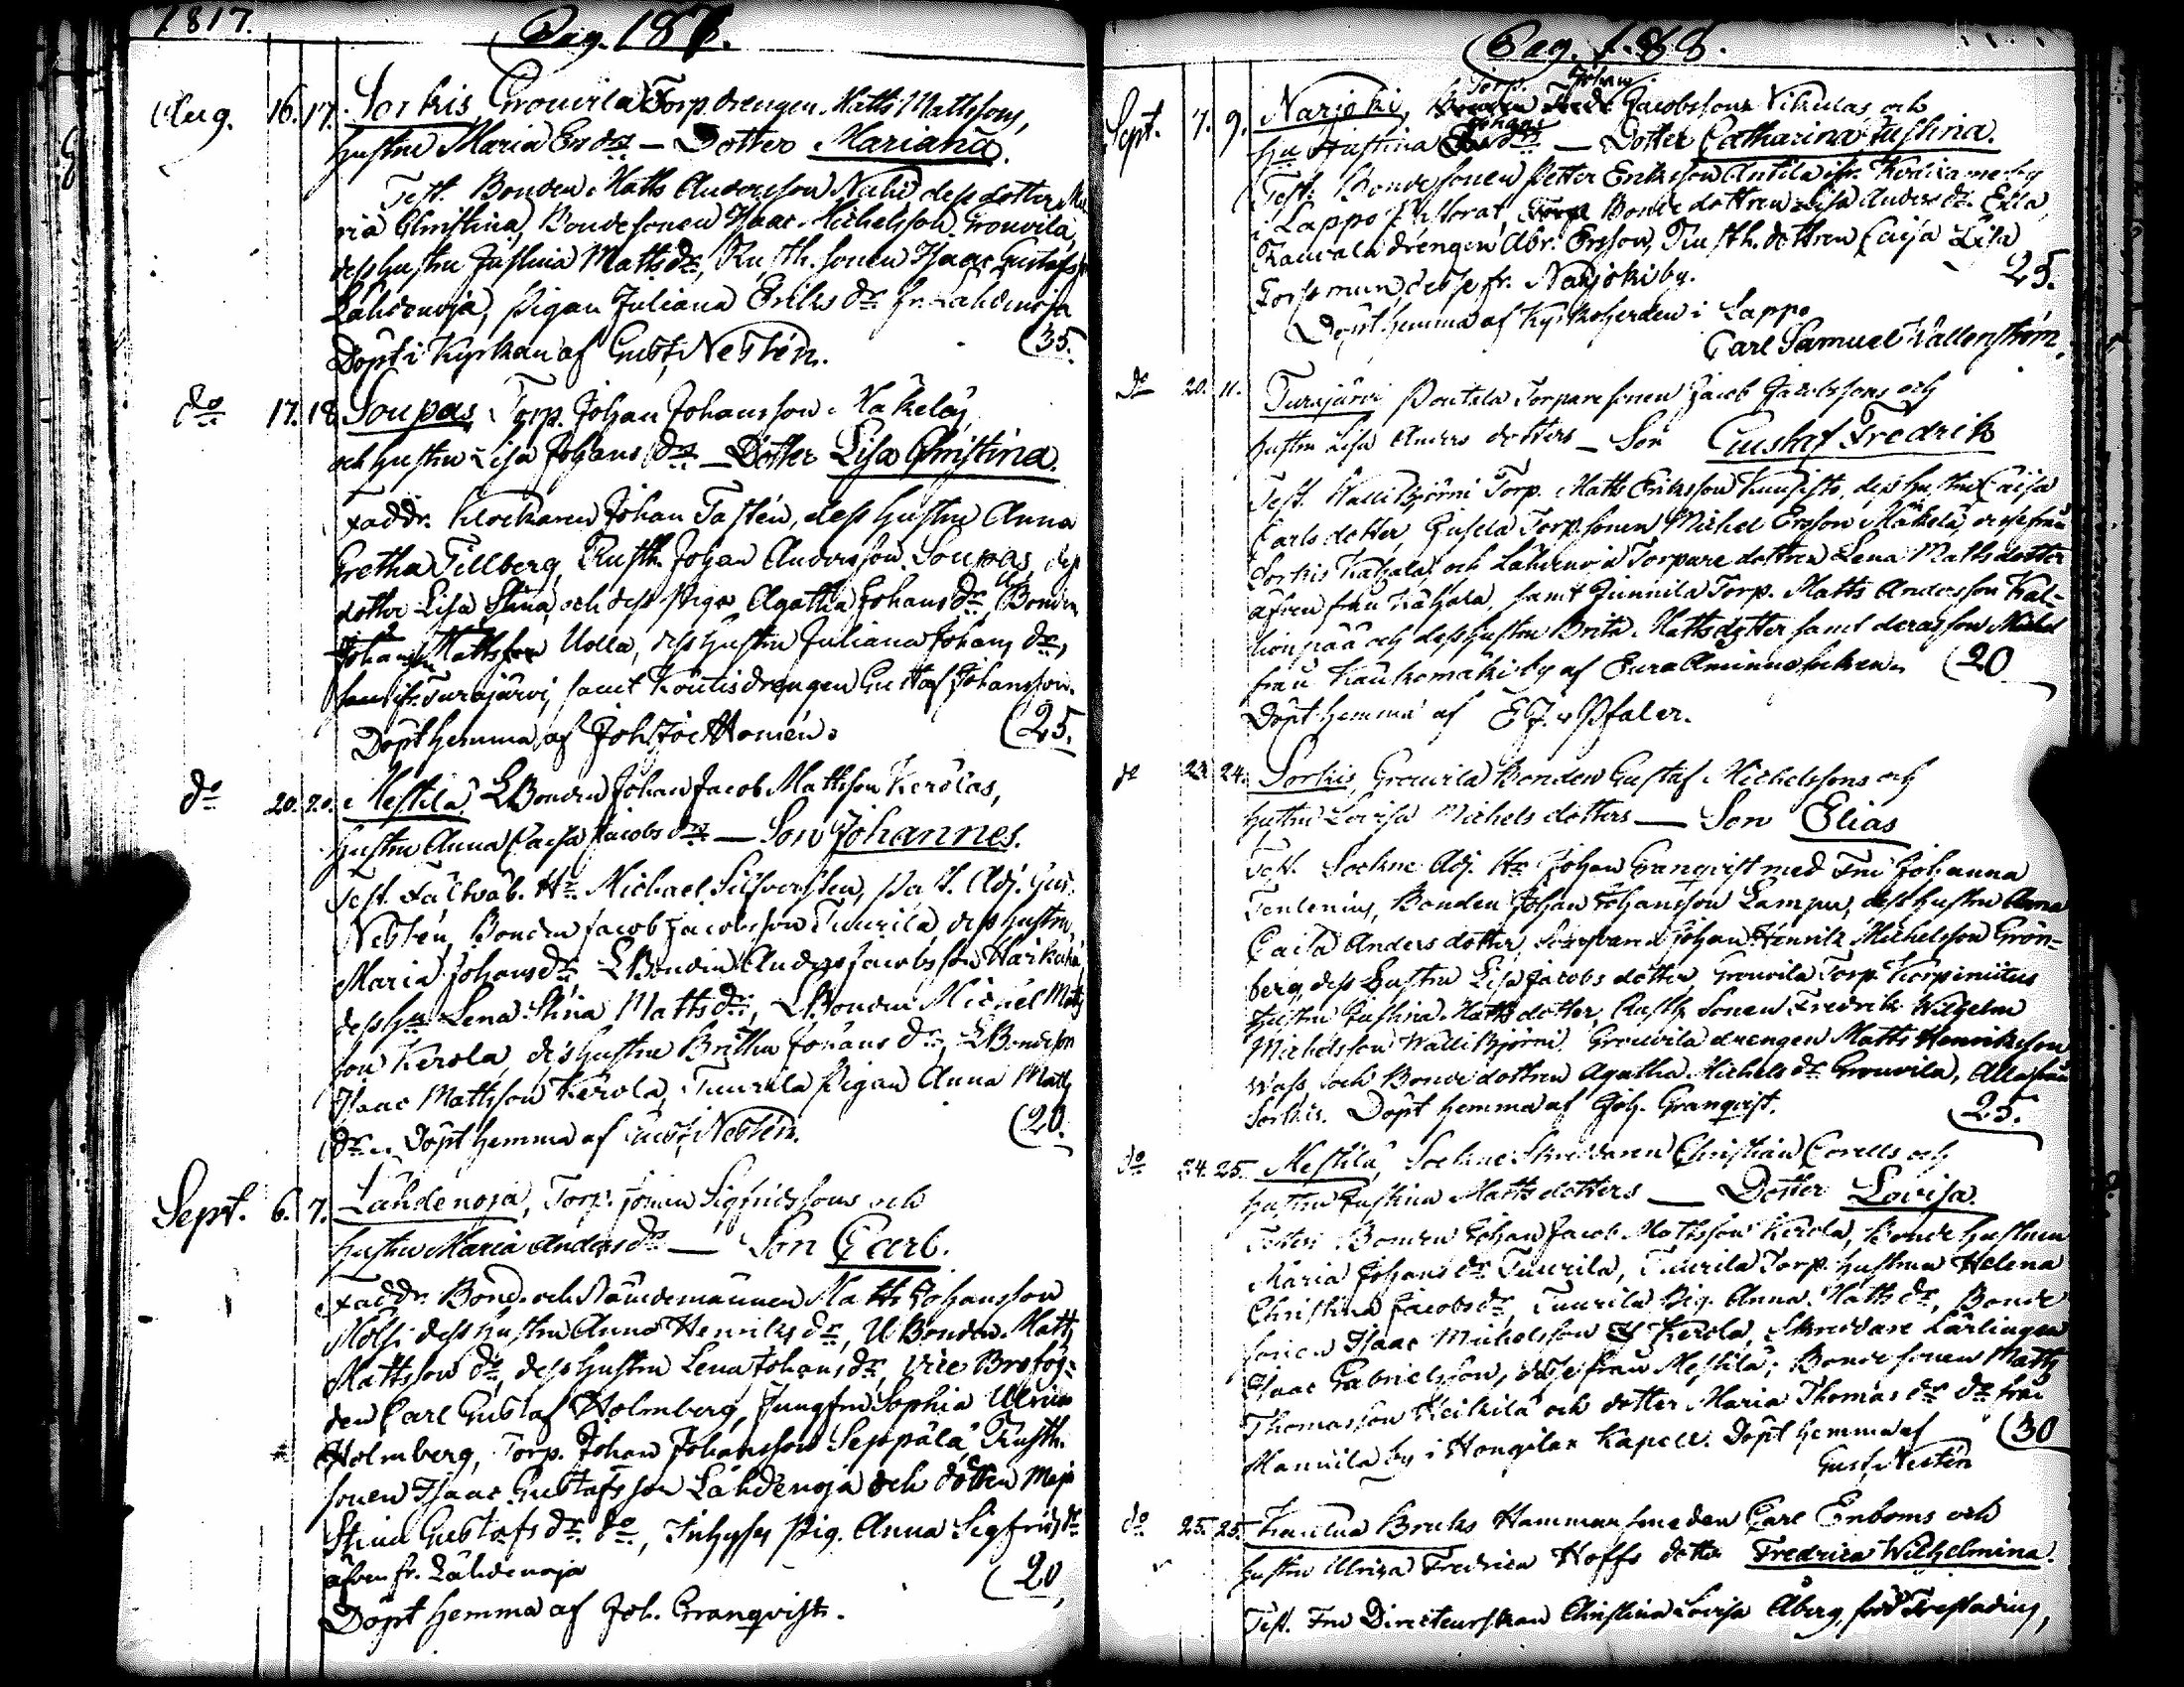 1817.
Pag. 187.
Aug. 16. 17. Sorkis Grouvila Torp.drengen Matts Mattssons,
hustru Maria Ersdr — Dotter Mariana.
Test. Bonden Matts Andersson dess dotter Ma-
ria Christina, Bondesonen Isaac Michelsson Grouvila,
dess hustru Justina Matts dr, Rusth. sonen Isaac Gustafss
Lähdenoja, Pigan Juliana Eriks dr fr. Lähdenoja
(35.
Döpt i Kyrkan af Gust. Nestén.
do 17. 18. Soupas, Torp. Johan Johansson Mäkelas,
och hustru Lisa Johans dr — Dotter Lisa Christina.
Faddr. Klockaren Johan Tastén, dess hustru Anna
Gretha Tillberg, Rusth. Johan Andersson Soupas, dess
dotter Lisa Stina, och dess Piga Agatha Johans dr, Bonden
Johan Mattsson Uolla, dess hustru Juliana Johans dr,
fr. Turajärvi, samt Köutis drengen Gustaf Johansson.
(25.
Döpt hemma af Joh. Jac. Homén.
do 20. 20. Mestilä, LBonden Johan Jacob Mattsson Kerolas,
hustru Anna Caisa Jacobs dr — Son Johannes.
Test. Fältväb. Hr Michael Silfversten, Past. Adj. Gust.
Nestén, Bonden Jacob Jacobsson Tuurila dess hustru
Maria Johans dr, LBonden Anders Jacobsson
dess hu Lena Stina Matts dr, LBonden Michel Matts
son Kerola, dess hustru Britha Johans dr, LBondeson
Isaac Mattsson Kerola, Tuurila Pigan Anna Matts
dr. Döpt hemma af Gust. Nestén.
(20.
Sept. 6. 7. Lähdenoja, Torp. Johan Sigfridssons och
hustru Maria Anders dr — Son Carl.
Faddr. Bond. och Nämdemannen Matts Johansson
Nolsi dess hustru Anna Henriks dr, UBonden Matts
Mattsson do, dess hustru Lena Johans dr, vice Brofog-
den Carl Gustaf Holmberg, Jungfru Sophia Ulrica
Holmberg, Torp. Johan Johansson Seppälä, Rusth.
sonen Isaac Gustafsson Lähdenoja och dotten Maja
Stina Gustafs dr do, Inhyses Pig. Anna Sigfrids dr
äfven fr. Lähdenoja
(20
Döpt hemma af Joh. Granqvist.
Pag. 188.
Torp. Johan
Sept. 7. 9. Narjoki, Jacobssons Nikulas och
Johans
hu Justina dr — Dotter Catharina Justina.
Test. Bondesonen Petter Eriksson Antila ifr. by
i Lappo Pastorat, Bonde dottren Lisa Anders dr Erla,
drengen Abr. Ersson, Rusth. dottren Caisa Lisa
Torsemun, desse fr. Narjoki by.
25.
Döpt hemma af Kyrkoherden i Lappo
Carl Samuel Wallenström.
do 20. 11. Turajärvi Pentela Torparesonen Jacob Jacobssons och
hustru Lisa Anders dotters — Son Gustaf Fredrik
Test. Wallibjörni Torp. Matts Eriksson Kuusisto, dess hustru Caisa
Carls dotter, Torp.sonen Michel Ersson Mäkelä, desse från
Sorkis Kahala, och Lähdenoja Torpare dottren Lena Matts dotter
äfven från Kahala, samt Junnila Torp. Matts Andersson Kal-
lionpää och dess hustru Brita Mattsdotter samt deras son Michel
från Kaukomäki by af Euraåminne Socken.
(20
Döpt hemma af E.J. v. Pfaler.
do 23. 24. Sorkis, Grouvila Bonden Gustaf Michelssons och
hustru Lovisa Michels dotters — Son Elias
Test. Sockne Adj. Hr Johan Granqvist med Fru Johanna
Tenlenius, Bonden Johan Johansson Lampu, dess hustru Anna
Caisa Anders dotter, Johan Henrik Michelsson Grön-
berg, dess Hustru Lisa Jacobs dotter, Grouvila Torp. Korpiniitus
hustru Justina Matts dotter, Rusth. Sonen Fredrik Wilhelm
Michelsson Wallibjörni, Grouvila drengen Matts Henriksson
Wass och Bonde dottren Agatha Michels dr Grouvila, Alla från
Sorkis. Döpt hemma af Joh. Granqvist.
(25.
do 24. 25. Mestilä, Sockne Skreddaren Christian Corells och
hustru Justina Matts dotters — Dotter Lovisa.
Testes Bonden Johan Jacob Mattsson Kerola, Bonde hustrun
Maria Johans dr Tuurila, Tuurila Torp. hustrun Helena
Christina Jacobs dr, Tuurila Pig. Anna Matts dr, Bonde
sonen Isaac Michelsson Kerola, Skreddare Lärlingen
Isaac Gabrielsson, desse från Mestilä; Bondesonen Matts
Thomasson Heikilä och dotter Maria Thomas dr do från
Mannila by i Honkilax Kapell. Döpt hemma af
(30
Gust. Nestén
do 25. 25. Kauttua Bruks Hammarsmeden Carl Enboms och
hustru Ulrica Fredrica Hoffs dotter Fredrica Wilhelmina.
Test. Fru Directeurskan Christina Lovisa Åberg, född Trestadius,